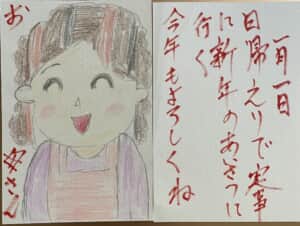 お
母さん
一月一日
日帰えりで実家
に新年のあいさつに
行く
今年もよろしくね